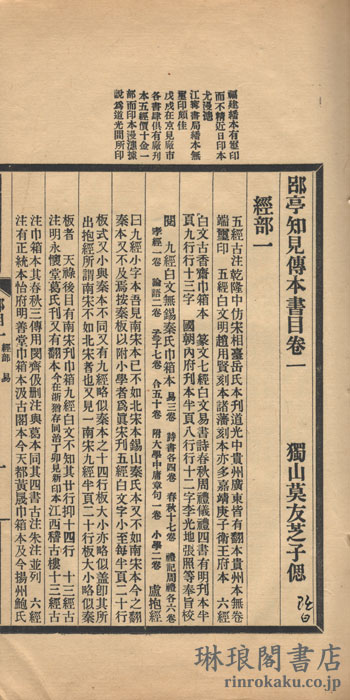 福建繙本有璽印
而不精近日印本
尤漫漶
江寧書局繙本無
璽印頗佳
戊戌在京見廠市
各書肆俱有廠刋
本五經價十金一
部而印本漫漶據
說為道光間所印
郘亭知見傳本書目卷一
獨山莫友芝子偲
經部一
五經古注乾隆中仿宋相臺岳氏本刋道光中貴州廣東皆有翻本貴州本無卷
端璽印 五經白文明趙用賢刻本諸藩刻本亦多嘉靖庚子衛王府本 六經
白文古香齋巾箱本 篆文七經白文易書詩春秋周禮儀禮四書有明刋本半
頁九行行十三字 國朝內府刋本半頁八行行十二字李光地張照等奉旨校
閱 九經白文無錫秦氏巾箱本 易三卷 詩書各四卷 春秋十七卷 禮記周禮各六卷
孝經一卷 論語二卷 孟子七卷 合五十卷 附大學中庸章句一卷 小學二卷 盧抱經
曰九經小字本吾見南宋本已不如北宋本錫山秦氏本又不如南宋本今之翻
秦本又不及焉按秦板以附小學者爲眞宋刋五經白文字小至每半頁二十行
板式又小與秦本不同又有九經略似秦本之十四行板大小亦略似蓋卽其所
出抱經所謂南宋不如北宋者也又見一南宋九經半頁二十行板大小略似秦
板者 天祿後目有南宋刋巾箱九經白文不知其廿行抑十四行 十三經古
注明永懷堂葛氏刋又有翻本今在浙猶存同治丁卯見新印本江西稽古樓十三經古
注巾箱本其春秋三傳用閔齊伋刪注與葛本同其四書古注朱注並列 六經
注有正統本怡府明善堂巾箱本汲古閣本今天都黃晟巾箱本及今揚州鮑氏
經部 易
一
琳琅閣書店
rinrokaku.co.jp